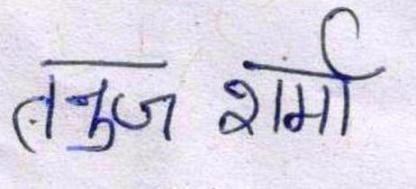 तनुज शर्मा